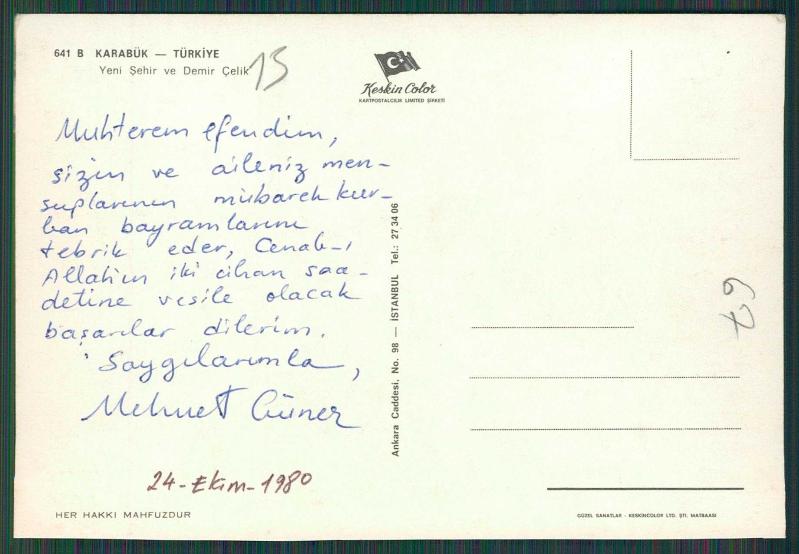 641 B KARABÜK — TÜRKİYE
Yeni Şehir ve Demir Çelik
15
Keskin Color
KARTPOSTALCILIK LIMITED ŞİRKETİ
Muhterem efendim,
sizin ve aileniz men-
suplarının mübarek kur-
ban bayramlarını
tebrik eder, Cenab-ı
Allah'ın iki cihan saa-
detine vesile olacak
başarılar dilerim.
Saygılarımla,
Mehmet Güner
24-Ekim-1980
Ankara Caddesi, No. 98 — İSTANBUL Tel.: 27 34 06
67
HER HAKKI MAHFUZDUR
GÜZEL SANATLAR - KESKİNCOLOR LTD. ŞTİ. MATBAASI